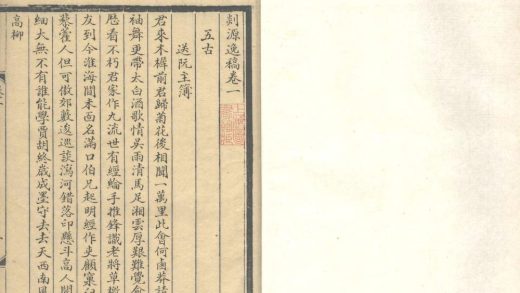 剡源逸稿卷一
五古
送阮主簿
君來木樨前君歸菊花後相聞一萬里此會何鹵莽話
袖舞更帶太白酒歌情吳雨清馬足湘雲厚艱難覺
歷看不朽君家作九流世有經綸手推鋒識老將草檄
友到今淮海間未面名滿口伯兄起明經作吏顧
藜藿人但可傲郊藪逡巡談瀉河錯落印懸斗高人聞
細大無不有誰能學賈胡終歲成墨守去去天西南風
高柳